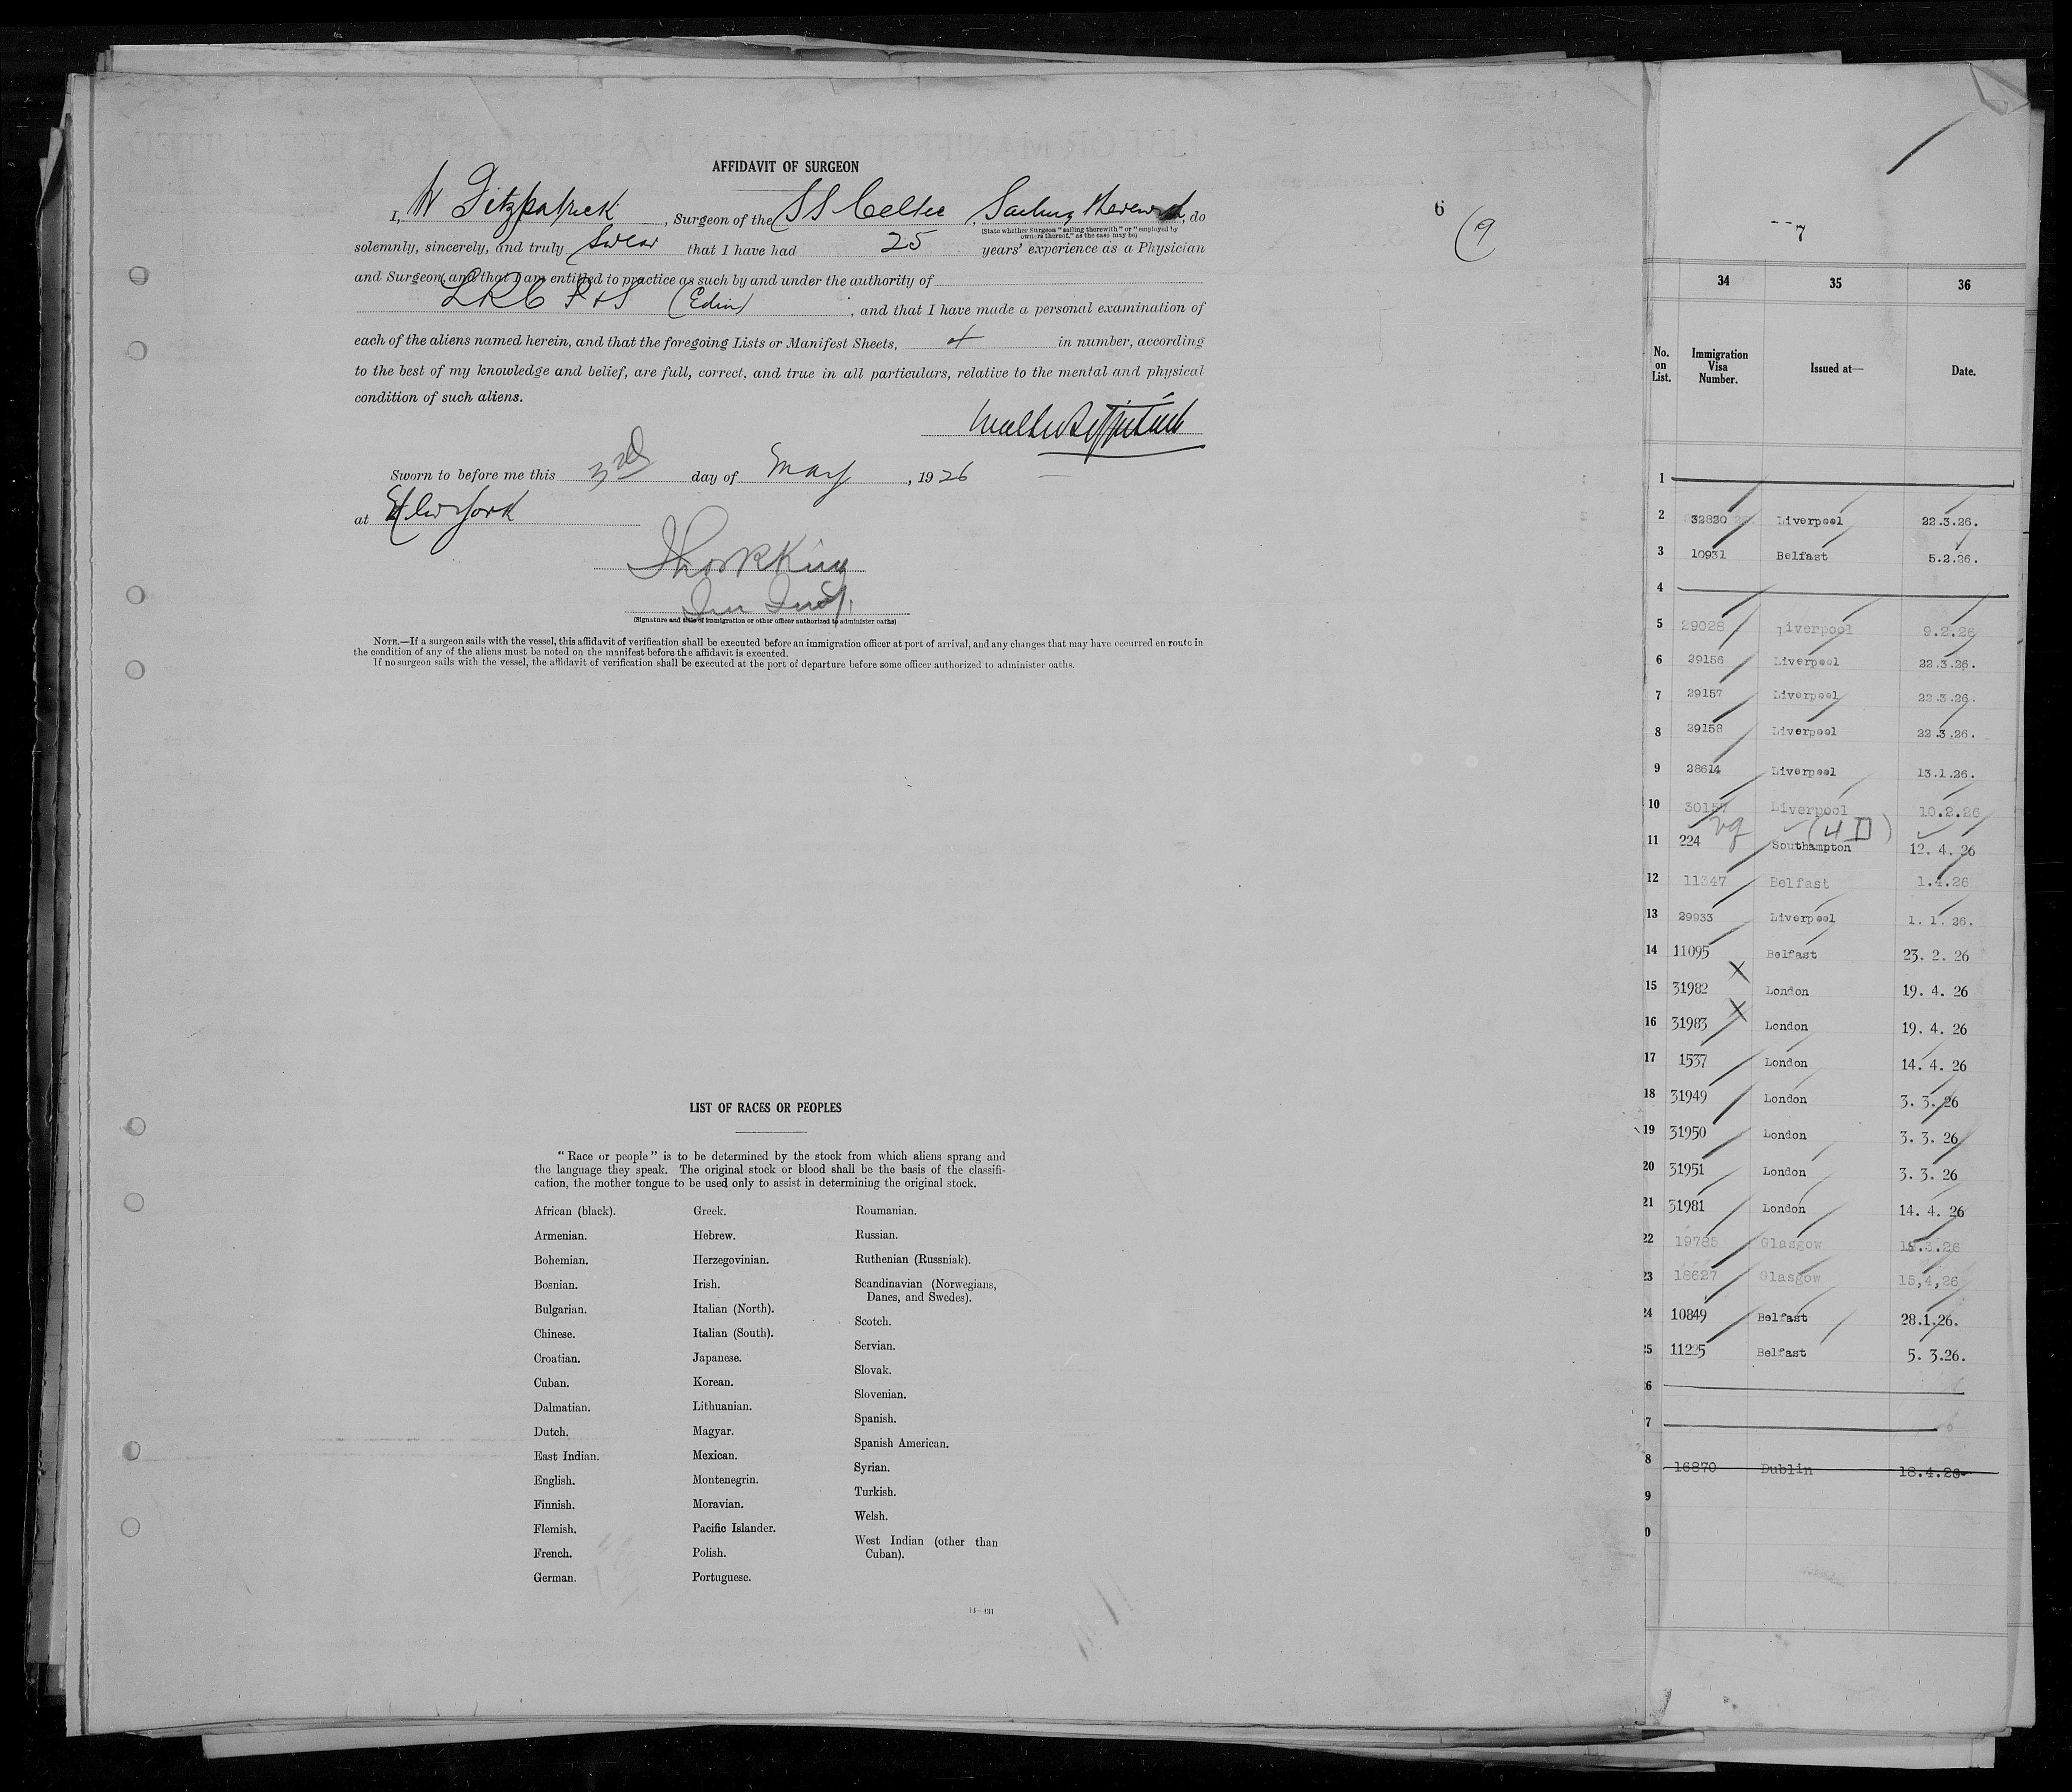 AFFIDAVIT OF SURGEON
I, W Fitzpatrick, Surgeon of the SS Celtic, Sailing therewith, do
(State whether Surgeon "sailing therewith" or "employed by
owners thereof," as the case may be)
solemnly, sincerely, and truly swear that I have had 25 years' experience as a Physician
and Surgeon, and that I am entitled to practice as such by and under the authority of
LRC P & S (Edin), and that I have made a personal examination of
each of the aliens named herein, and that the foregoing Lists or Manifest Sheets, 4 in number, according
to the best of my knowledge and belief, are full, correct, and true in all particulars, relative to the mental and physical
condition of such aliens.
Walter Fitzpatrick
Sworn to before me this 3rd day of May, 1926
at New York
(Signature and title of immigration or other officer authorized to administer oaths)
NOTE.—If a surgeon sails with the vessel, this affidavit of verification shall be executed before an immigration officer at port of arrival, and any changes that may have occurred en route in
the condition of any of the aliens must be noted on the manifest before the affidavit is executed.
If no surgeon sails with the vessel, the affidavit of verification shall be executed at the port of departure before some officer authorized to administer oaths.
LIST OF RACES OR PEOPLES
"Race or people" is to be determined by the stock from which aliens sprang and
the language they speak. The original stock or blood shall be the basis of the classifi-
cation, the mother tongue to be used only to assist in determining the original stock.
African (black).
Armenian.
Bohemian.
Bosnian.
Bulgarian.
Chinese.
Croatian.
Cuban.
Dalmatian.
Dutch.
East Indian.
English.
Finnish.
Flemish.
French.
German.
Greek.
Hebrew.
Herzegovinian.
Irish.
Italian (North).
Italian (South).
Japanese.
Korean.
Lithuanian.
Magyar.
Mexican.
Montenegrin.
Moravian.
Pacific Islander.
Polish.
Portuguese.
Roumanian.
Russian.
Ruthenian (Russniak).
Scandinavian (Norwegians,
Danes, and Swedes).
Scotch.
Servian.
Slovak.
Slovenian.
Spanish.
Spanish American.
Syrian.
Turkish.
Welsh.
West Indian (other than
Cuban).
14—431
6
(9
7
34 35 36
No. on List. Immigration Visa Number. Issued at— Date.
1
2 32620 Liverpool 22.3.26.
3 10931 Belfast 5.2.26.
4
5 29028 Liverpool 9.2.26
6 29156 Liverpool 22.3.26.
7 29157 Liverpool 22.3.26.
8 29158 Liverpool 22.3.26.
9 28614 Liverpool 13.1.26.
10 30157 Liverpool 10.2.26
(4 II)
11 224 Southampton 12. 4. 26
12 11347 Belfast 1.4.26
13 29933 Liverpool 1. 1. 26.
14 11095 Belfast 23. 2. 26
15 31982 London 19. 4. 26
16 31983 London 19. 4. 26
17 1537 London 14. 4. 26
18 31949 London 3. 3. 26
19 31950 London 3. 3. 26
20 31951 London 3. 3. 26
21 31981 London 14. 4. 26
22 19785 Glasgow
23 18627 Glasgow 15,4,26
24 10849 Belfast 28.1.26.
25 11225 Belfast 5. 3.26.
6
7
8 16870 Dublin 18.4.26
9
0